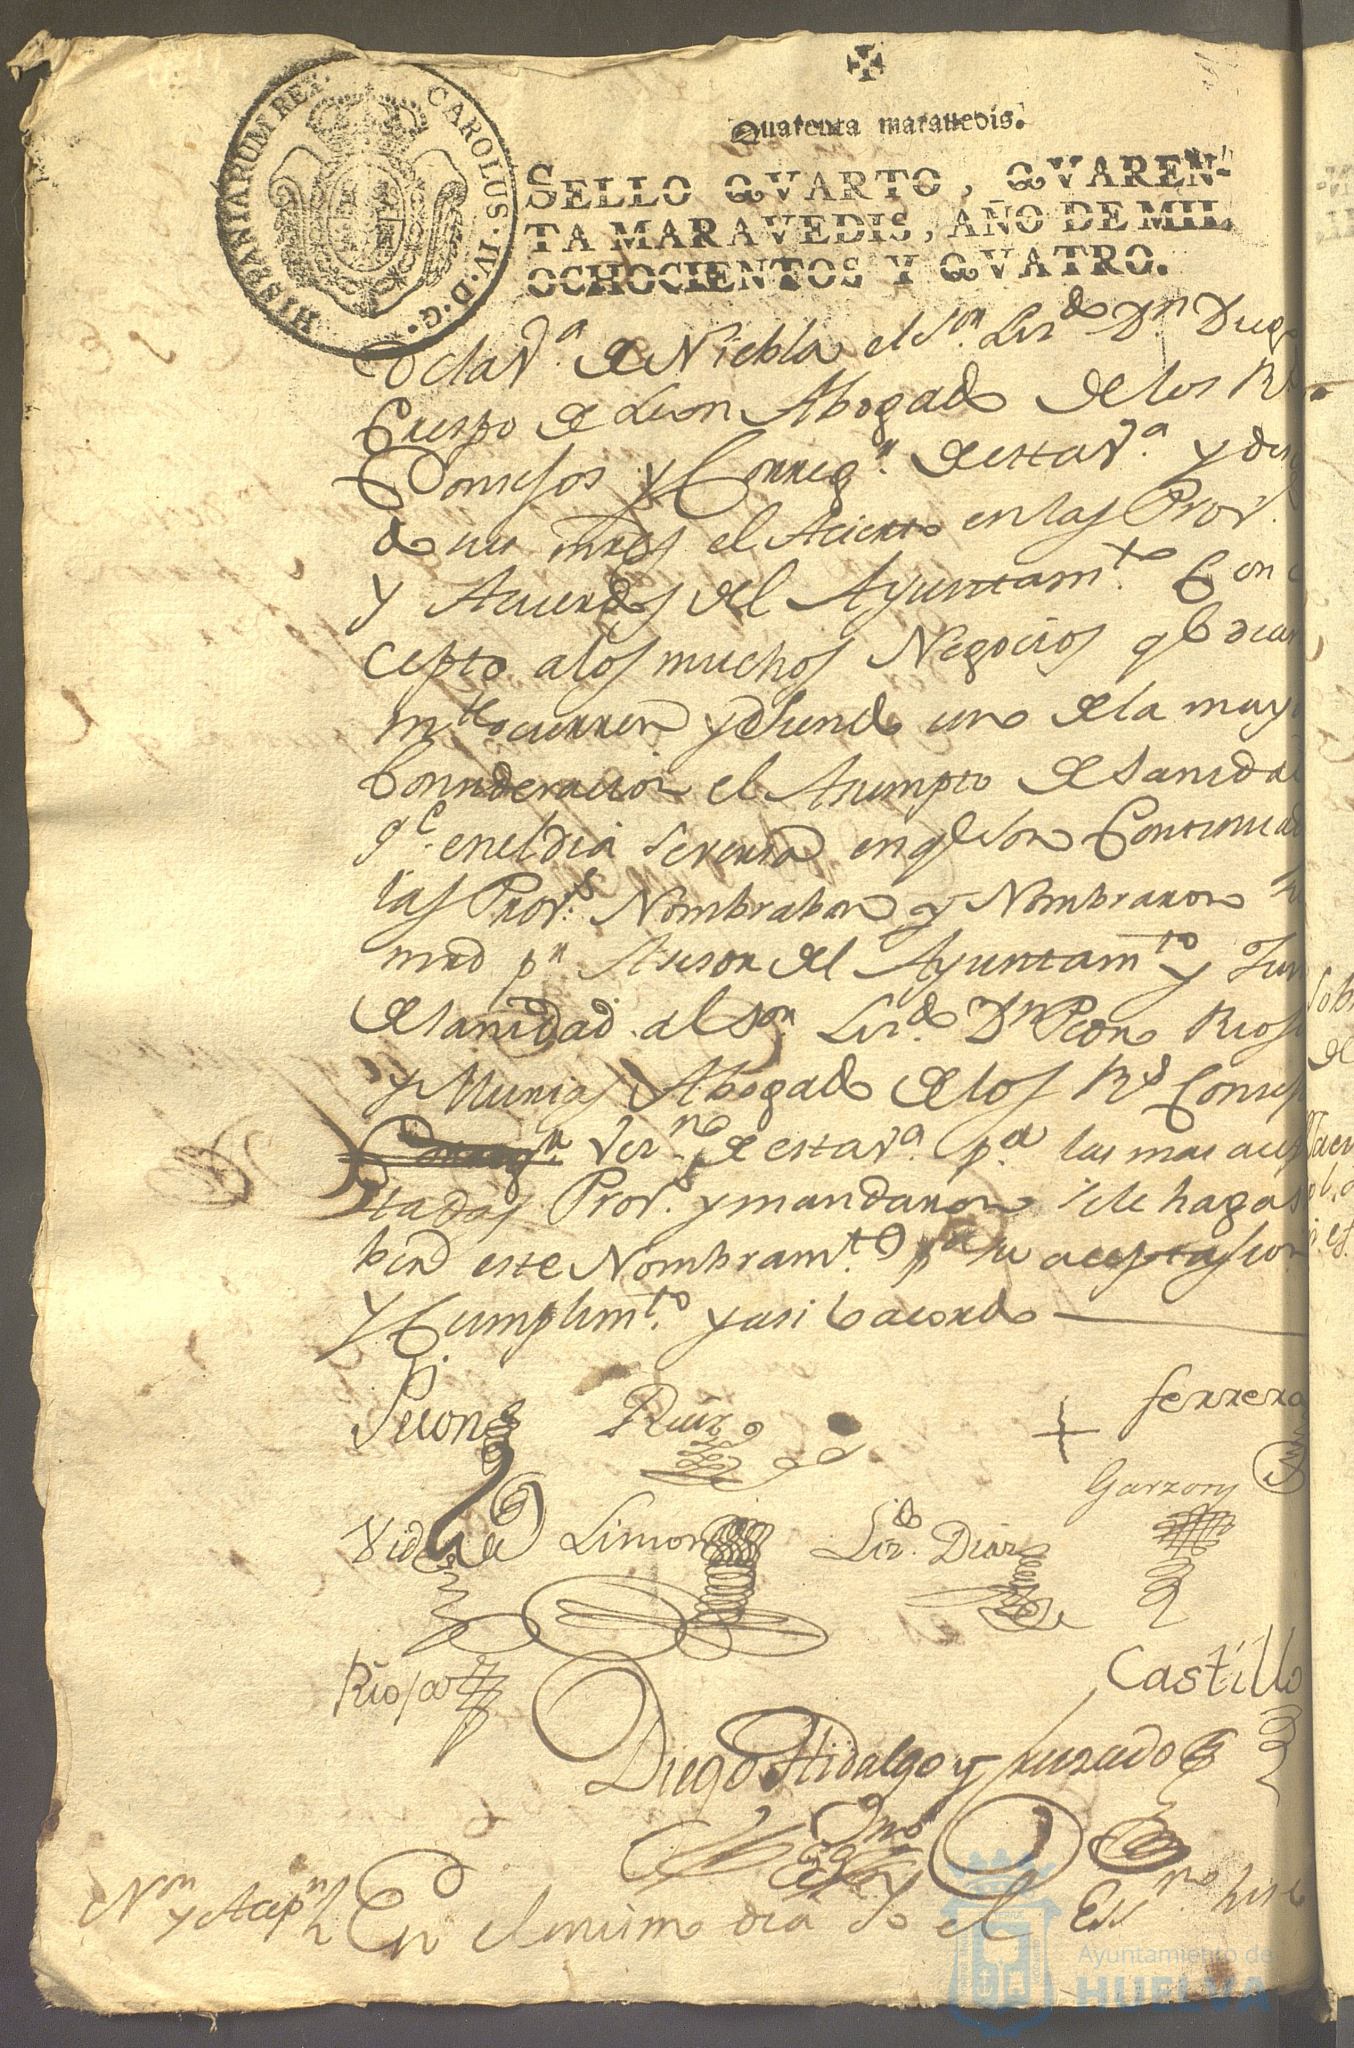 HISPANIARUM REX. CAROLUS·IV·D·G·
Quarenta marauedis.
SELLO QVARTO, QVAREN-
TA MARAVEDIS, AÑO DE MIL
OCHOCIENTOS Y QVATRO.
de Niebla el Sor. Licdo Dn Diego
Crespo de Leon Abogado de los Rs
Consejos y Correg.r de esta V.a y
de sus mrds el Acierto en las Prov.
y Acuerdos del Ayuntam.to Con
cepto a los muchos Negocios qe diar
mte ocurren y siendo uno de la mayo
Consideracion el Asumpto de Sanidad
qe en el dia en qe son
las Prov.s Nombraban y Nombraron
mrd pr Asesor del Ayuntam.to y Jun
de Sanidad al Sor. Licdo. Dn Pedro Rioja
y Munis Abogado de los Rs Consej
Vecno. de esta Va. pa las mas acer
tadas Prov.s y mandaron se le haga sa
ber este Nombram.to pa su aceptasion
y Cumplim.to y asi lo acordo
Ruiz
Ferrera
Garzon
Vid
Limon
Licdo. Diaz
Rioja
Castillo
Diego Hidalgo y Jurado
Esno
Non y Acepn
En el mismo dia Yo el Essno. hise
Ayuntamiento de
HUELVA